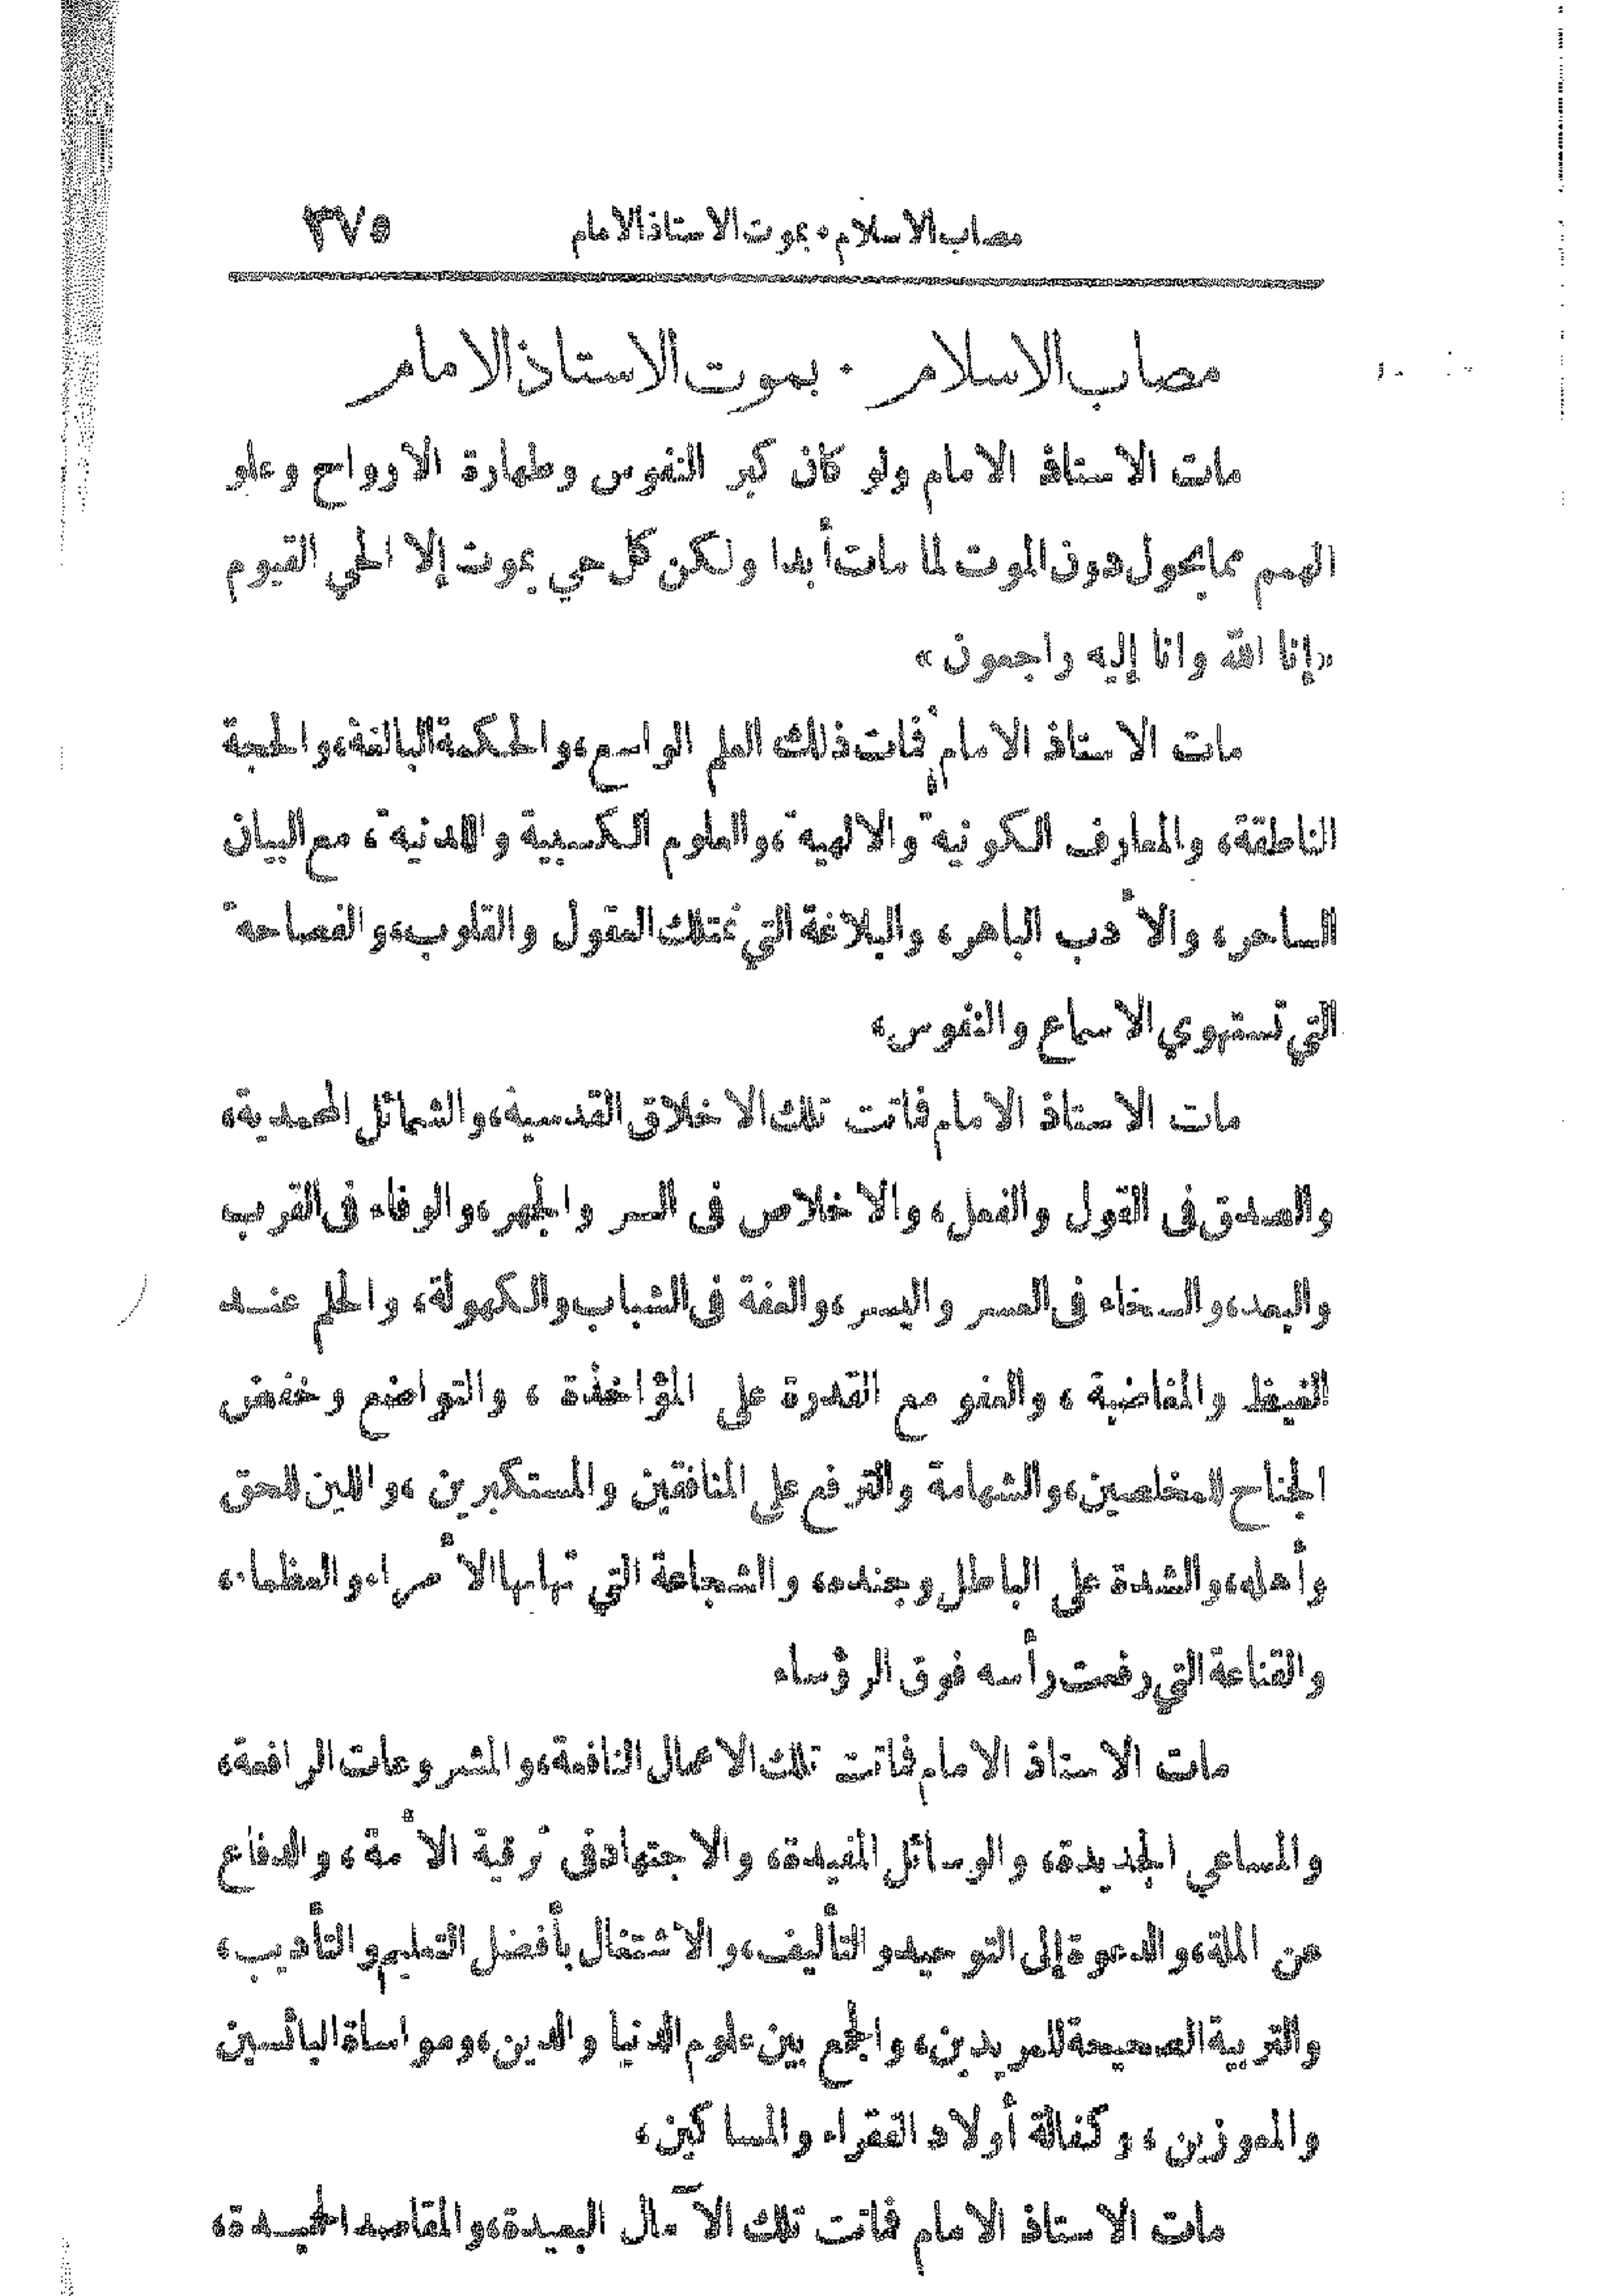 مصاب الاسلام . بموت الاستاذ الامام ٣٧٥
مصاب الاسلام . بموت الاستاذ الامام
مات الاستاذ الامام ولو كان كبر النفوس وطهارة الارواح وعلو
الهمم مما يحول دون الموت لما مات أبدا ولكن كل حي يموت إلا الحي القيوم
«إنا لله وانا إليه راجعون»
مات الاستاذ الامام فمات ذلك العلم الواسع، والحكمة البالغة، والحجة
الناطقة، والمعارف الكونية والالهية، والعلوم الكسبية واللدنية، مع البيان
الساحر، والأدب الباهر، والبلاغة التي تمتلك العقول والقلوب، والفصاحة
التي تستهوي الاسماع والنفوس،
مات الاستاذ الامام فماتت تلك الاخلاق القدسية، والشمائل المحمدية،
والصدق في القول والفعل، والاخلاص في السر والجهر، والوفاء في القرب
والبعد، والسخاء في العسر واليسر، والعفة في الشباب والكهولة، والحلم عند
الغيظ والمغاضبة، والعفو مع القدرة على المؤاخذة، والتواضع وخفض
الجناح للمخلصين، والشهامة والترفع على المنافقين والمستكبرين، واللين للحق
وأهله، والشدة على الباطل وجنده، والشجاعة التي تهابها الأمراء والعظماء،
والقناعة التي رفعت رأسه فوق الرؤساء
مات الاستاذ الامام فماتت تلك الاعمال النافعة، والمشروعات الرافعة،
والمساعي الجديدة، والوسائل المفيدة، والاجتهاد في ترقية الأمة، والدفاع
عن الملة، والدعوة إلى التوحيد والتأليف، والاشتغال بأفضل التعليم والتأديب،
والتربية الصحيحة للمريدين، والجمع بين علوم الدنيا والدين، ومواساة البائسين
والمعوزين، وكفالة أولاد الفقراء والمساكين،
مات الاستاذ الامام فماتت تلك الآمال البعيدة، والمقاصد الحميدة،